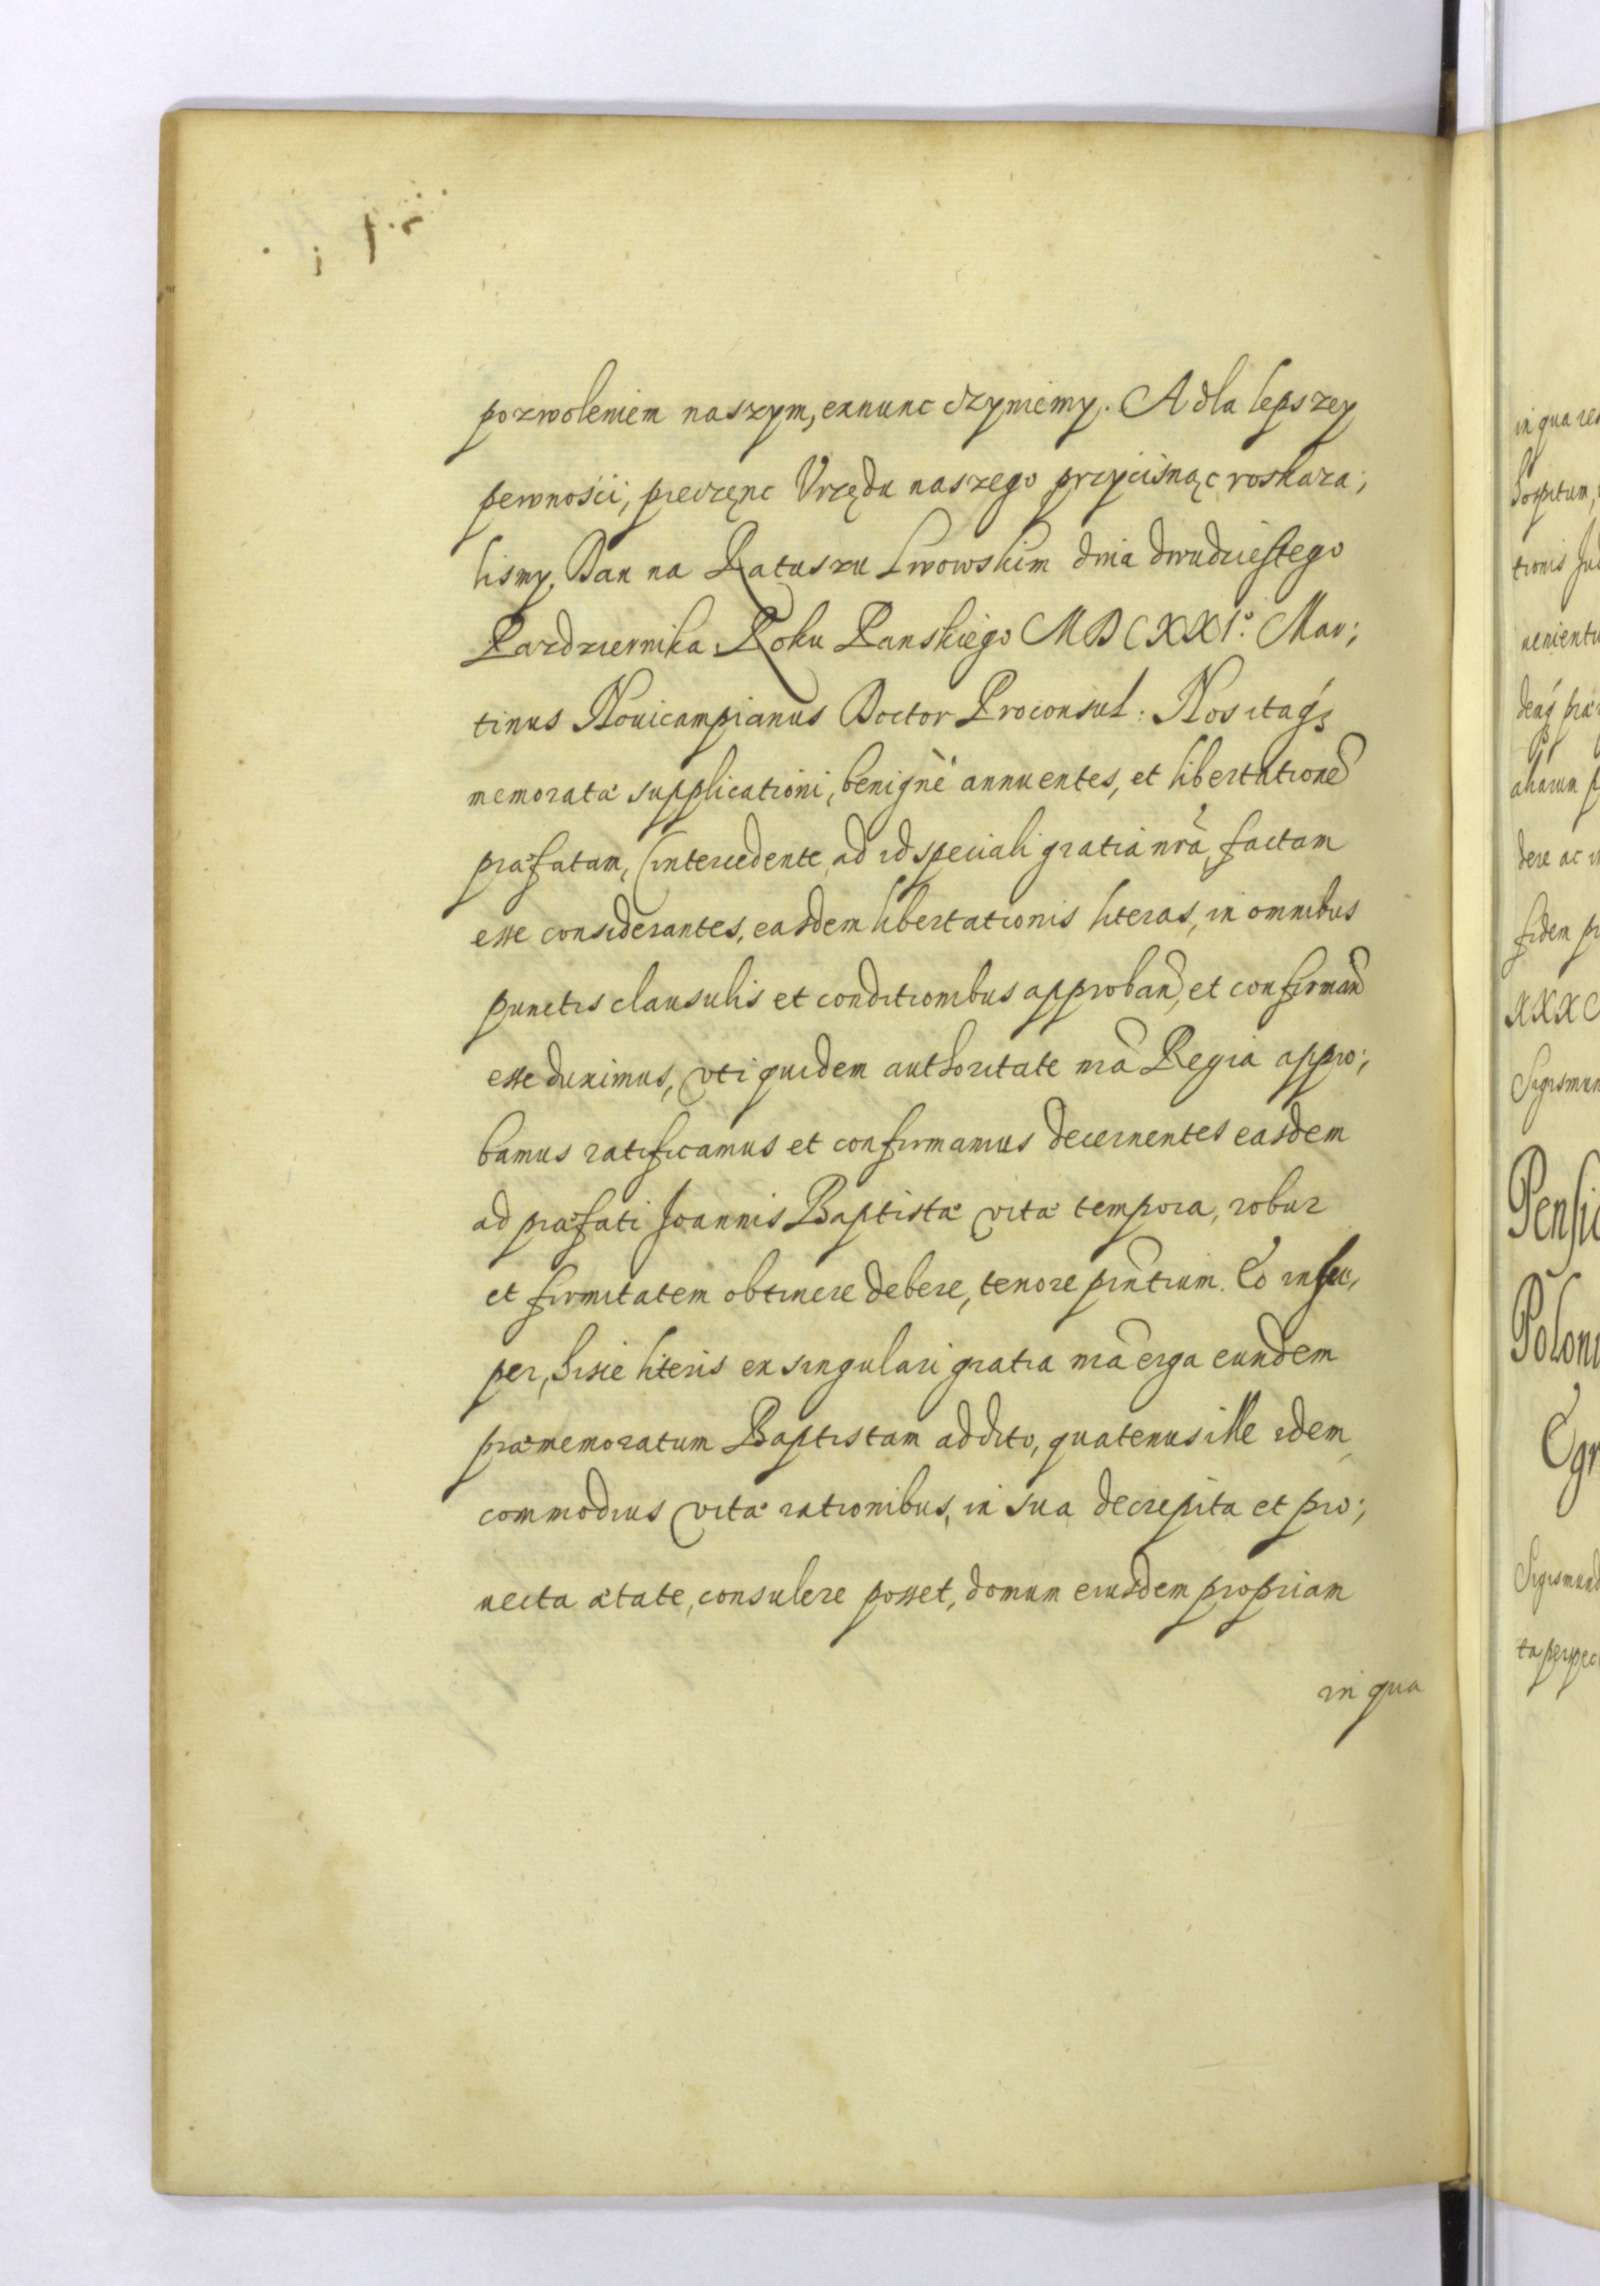 pozwoleniem naszym, exnunc czyniemy. A dla lepszey
pewności, pieczęnc Vrzędu naszego przycisnąc roskaza;
lismy. Dan na Ratuszu Lwowskim dnia dwudziestego
Pazdziernika Roku Panskiego MDCXXI.º Mar;
tinus Nouicampianus Doctor Proconsul: Nos itaq́ꝫ
memoratæ supplicationi, benignè annuentes, et libertationẽ
præfatam, (intercedente ad id speciali gratia nr̃a, factam
esse considerantes, easdem libertationis literas, in omnibus
punctis clausulis et conditionibus approbañ, et confirmañ
esse duximus, vti quidem authoritate nr̃a Regia appro;
bamus ratificamus et confirmamus decernentes easdem
ad præfati Joannis Baptistæ vitæ tempora, robur
et firmitatem obtinere debere, tenore pñtium. Eo insu,
per, hisce literis ex singulari gratia nr̃a erga eundem
præmemoratum Baptistam addito, quatenus ille idem
commodius vitæ rationibus, in sua decrepita et pro;
uecta ætate, consulere posset, domum eiusdem propriam
in qua
in qua
hospitum,
tionis
uenientu
deq́ præ
aliarum
dere ac
fidem
XXX
Sigismun
Pensi
Poloni
Egr
Sigismund